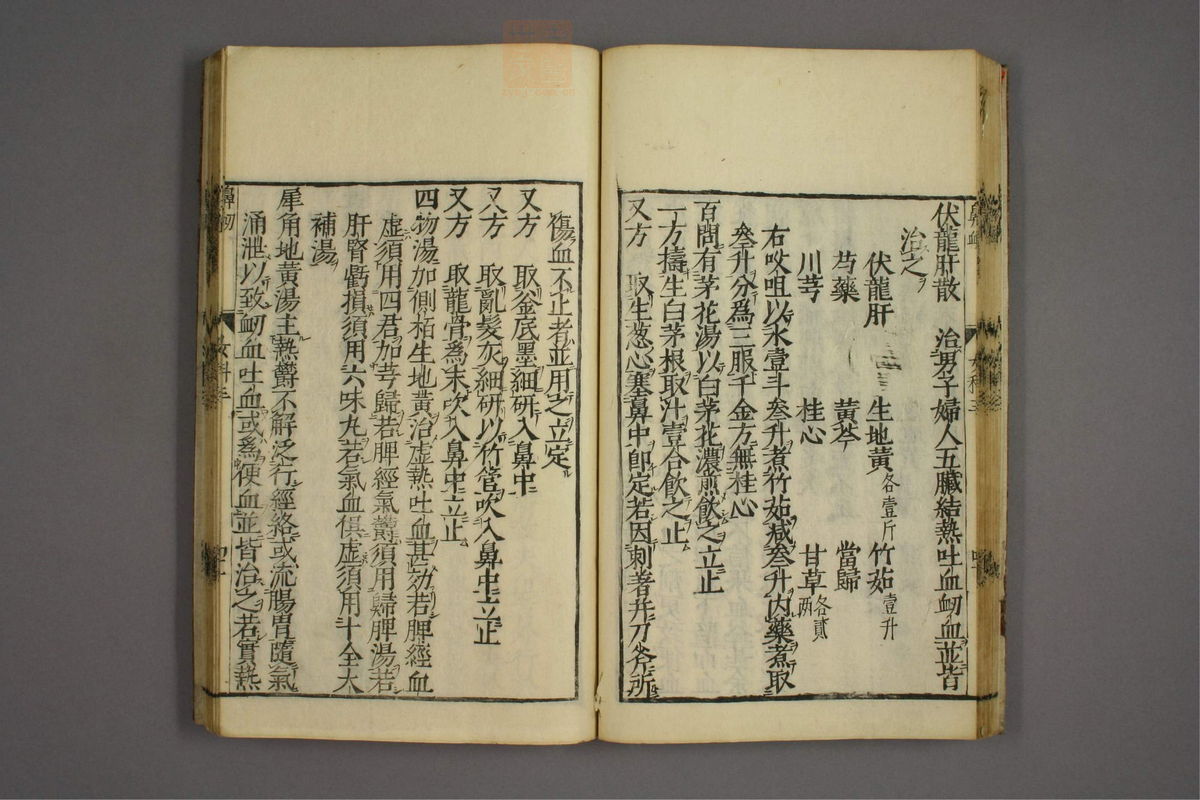 伏龍肝散　治男子婦人五臟結熱吐血衂血並皆
治之
伏龍肝　生地黃各壹斤　竹茹壹升
芍藥　黃芩　當歸
川芎　桂心　甘草各貳兩
右㕮咀以水壹斗叁升煮竹茹减叁升內藥煮取
叁升分爲三服千金方無桂心
百問有茅花湯以白茅花濃煎飲之立止
一方擣生白茅根取汁壹合飲之止
又方　取生葱心塞鼻中卽定若因刺著幷刀斧所
傷血不止者並用之立定
又方　取釜底墨細研入鼻中
又方　取亂髮灰細研以竹管吹入鼻中立止
又方　取龍骨爲末吹入鼻中立止
四物湯加側栢生地黃治虛熱吐血甚効若脾經血
虛須用四君加芎歸若脾經氣鬱須用歸脾湯若
肝腎虧損須用六味丸若氣血俱虛須用十全大
補湯
犀角地黃湯主熱欝不解泛行經絡或流腸胃隨氣
涌泄以致衂血吐血或爲便血並皆治之若實熱
鼻衂
女科三